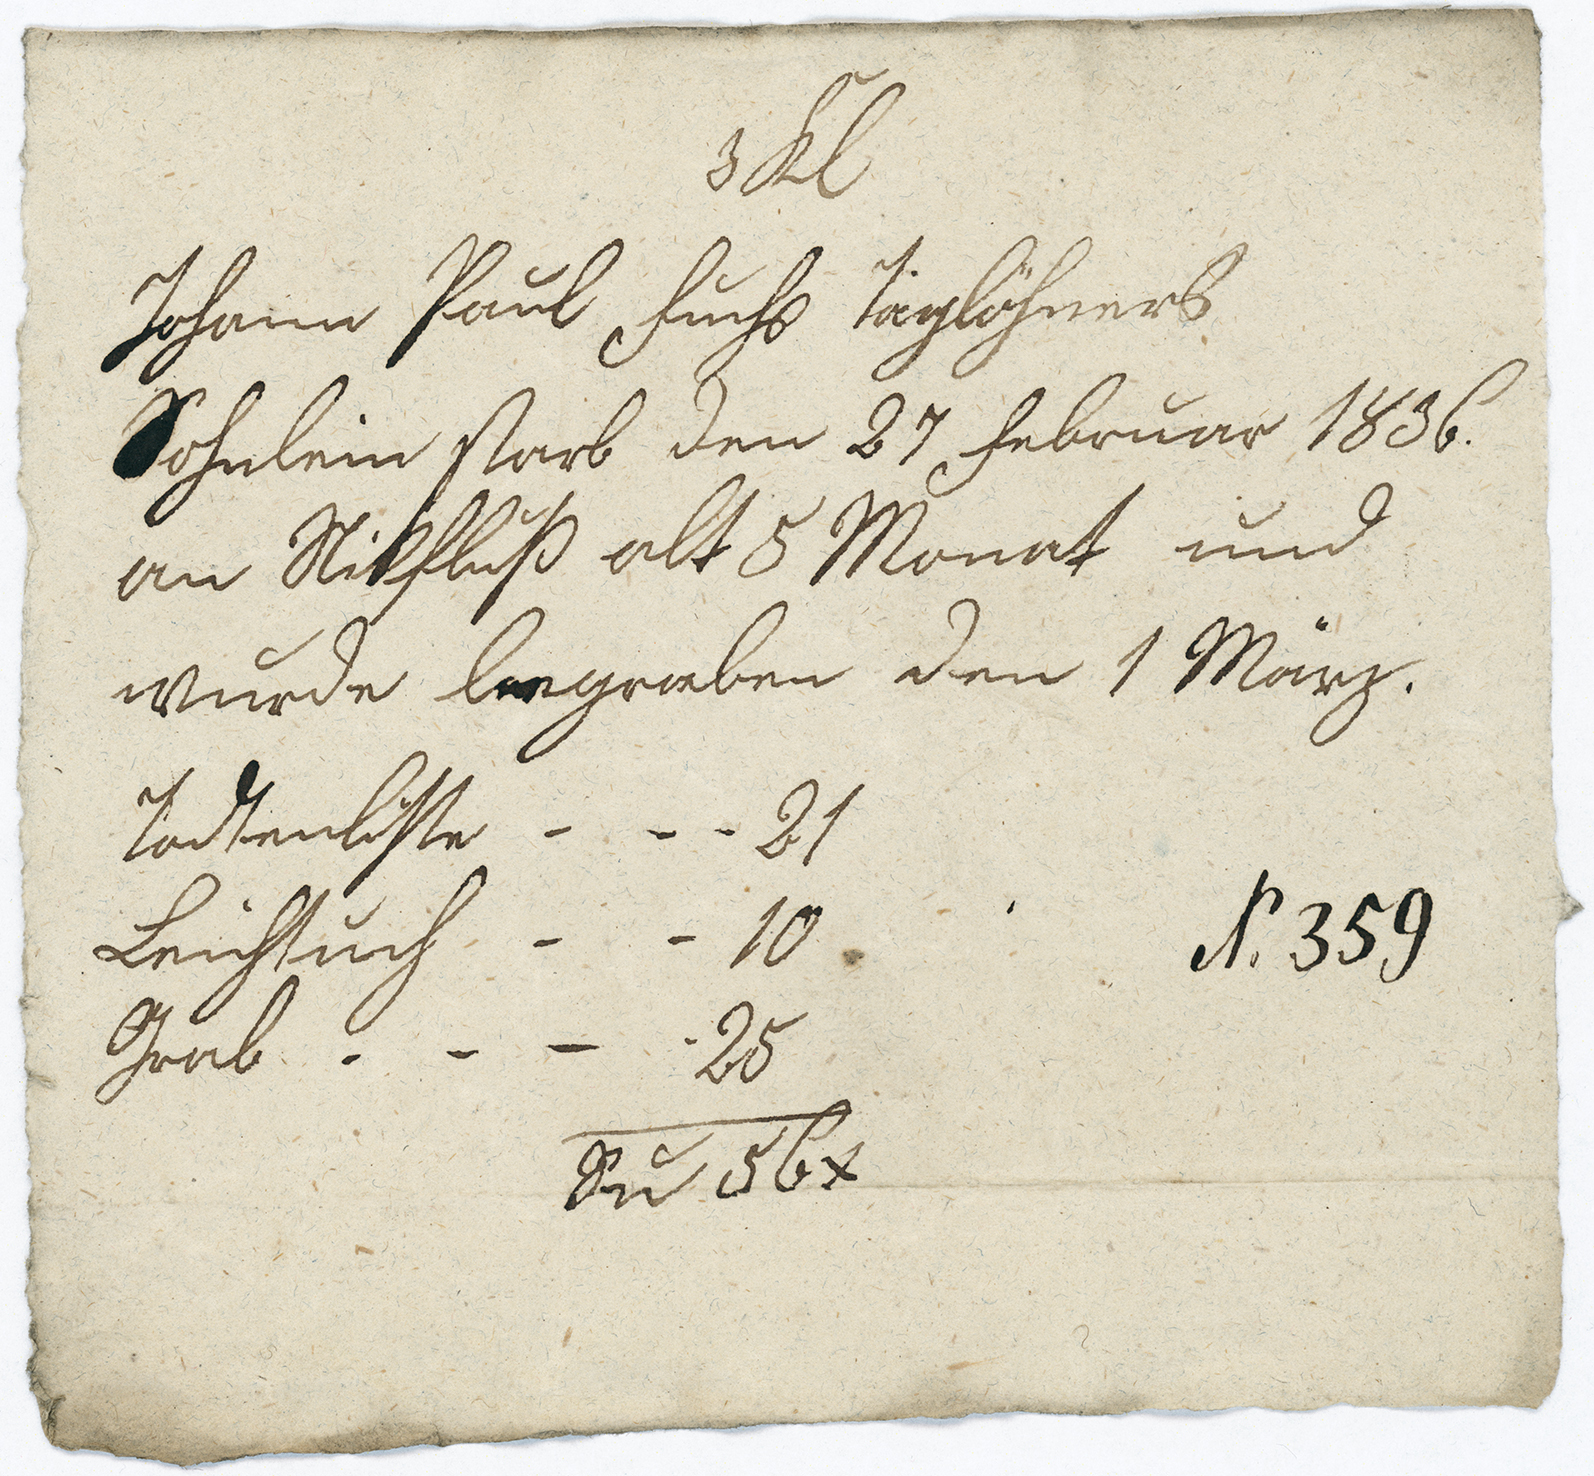 3 Kl
Johann Paul Fuchs Taglöhners
Sohnlein starb den 27 Februar 1836.
an Stikfluß alt 5 Monat und
wurde begraben den 1 März.
Todtenliste - - - 21
Leichtuch - - 10
N. 359
Grab - - - - 25
Su 56x